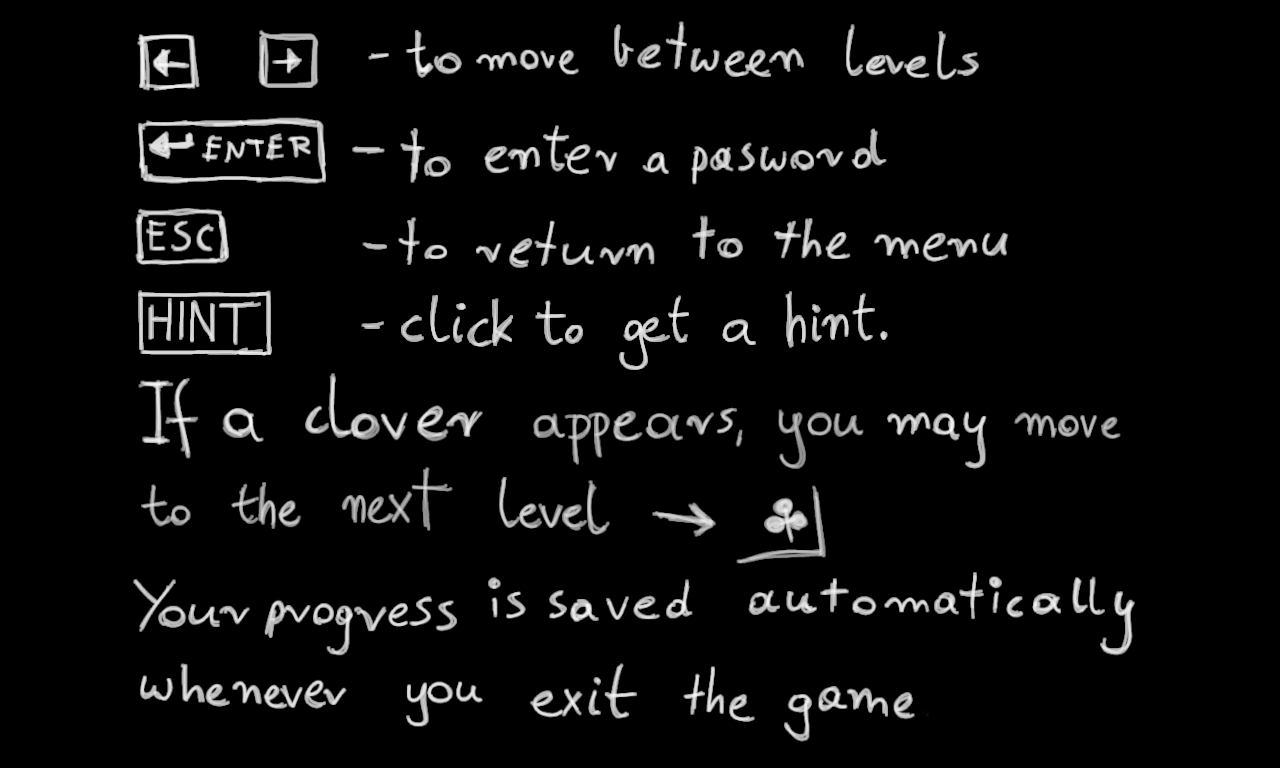 ← → - to move between levels
↵ ENTER - to enter a pasword
ESC - to return to the menu
HINT - click to get a hint.
If a clover appears, you may move
to the next level → ♣
Your progress is saved automatically
whenever you exit the game